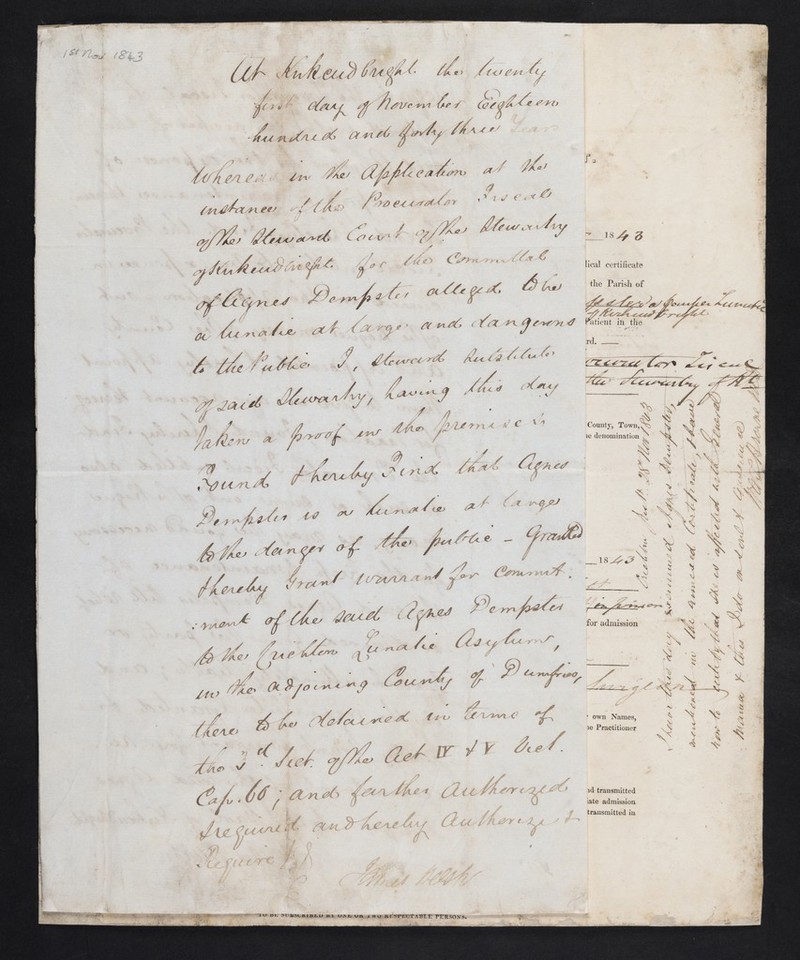 1st Nov 1843
At Kirkcudbright the twenty
first day of November Eighteen
hundred and forty three Years
Whereas in the Application at the
instance of the Procurator Fiscal
of the Steward Court of the Stewartry
of Kirkcudbright for the Committal
of Agnes Dempster alleged to be
a lunatic at large and dangerous
to the Public I, Steward Substitute
of said Stewartry, having this day
taken a proof in the premises
Found & hereby Find that Agnes
Dempster is a lunatic at large
to the danger of the public - Granted
& hereby Grant warrant for commit
:ment of the said Agnes Dempster
to the Crichton Lunatic Asylum,
in the adjoining County of Dumfries,
there to be detained in terms of
the 3d. Sect. of the Act IV & V Vict.
Cap. 60; and farther Authorized
& required and hereby Authorize &
Require
TO BE SUBSCRIBED BY ONE OR TWO RESPECTABLE PERSONS.
1843
ical certificate
the Parish of
a Pauper Lunatic
of Kirkcudbright
Patient in the
rd.
Fiscal
the Stewartry of Kt
County, Town,
denomination
1843
for admission
Surgeon
own Names,
Practitioner
d transmitted
ate admission
transmitted in
Crichton 28th Novr 1843
I have this day examined Agnes Dempster,
mentioned in the annexed Certificate, & have
now to certify that she is affected with General
Mania & this I do on soul & conscience